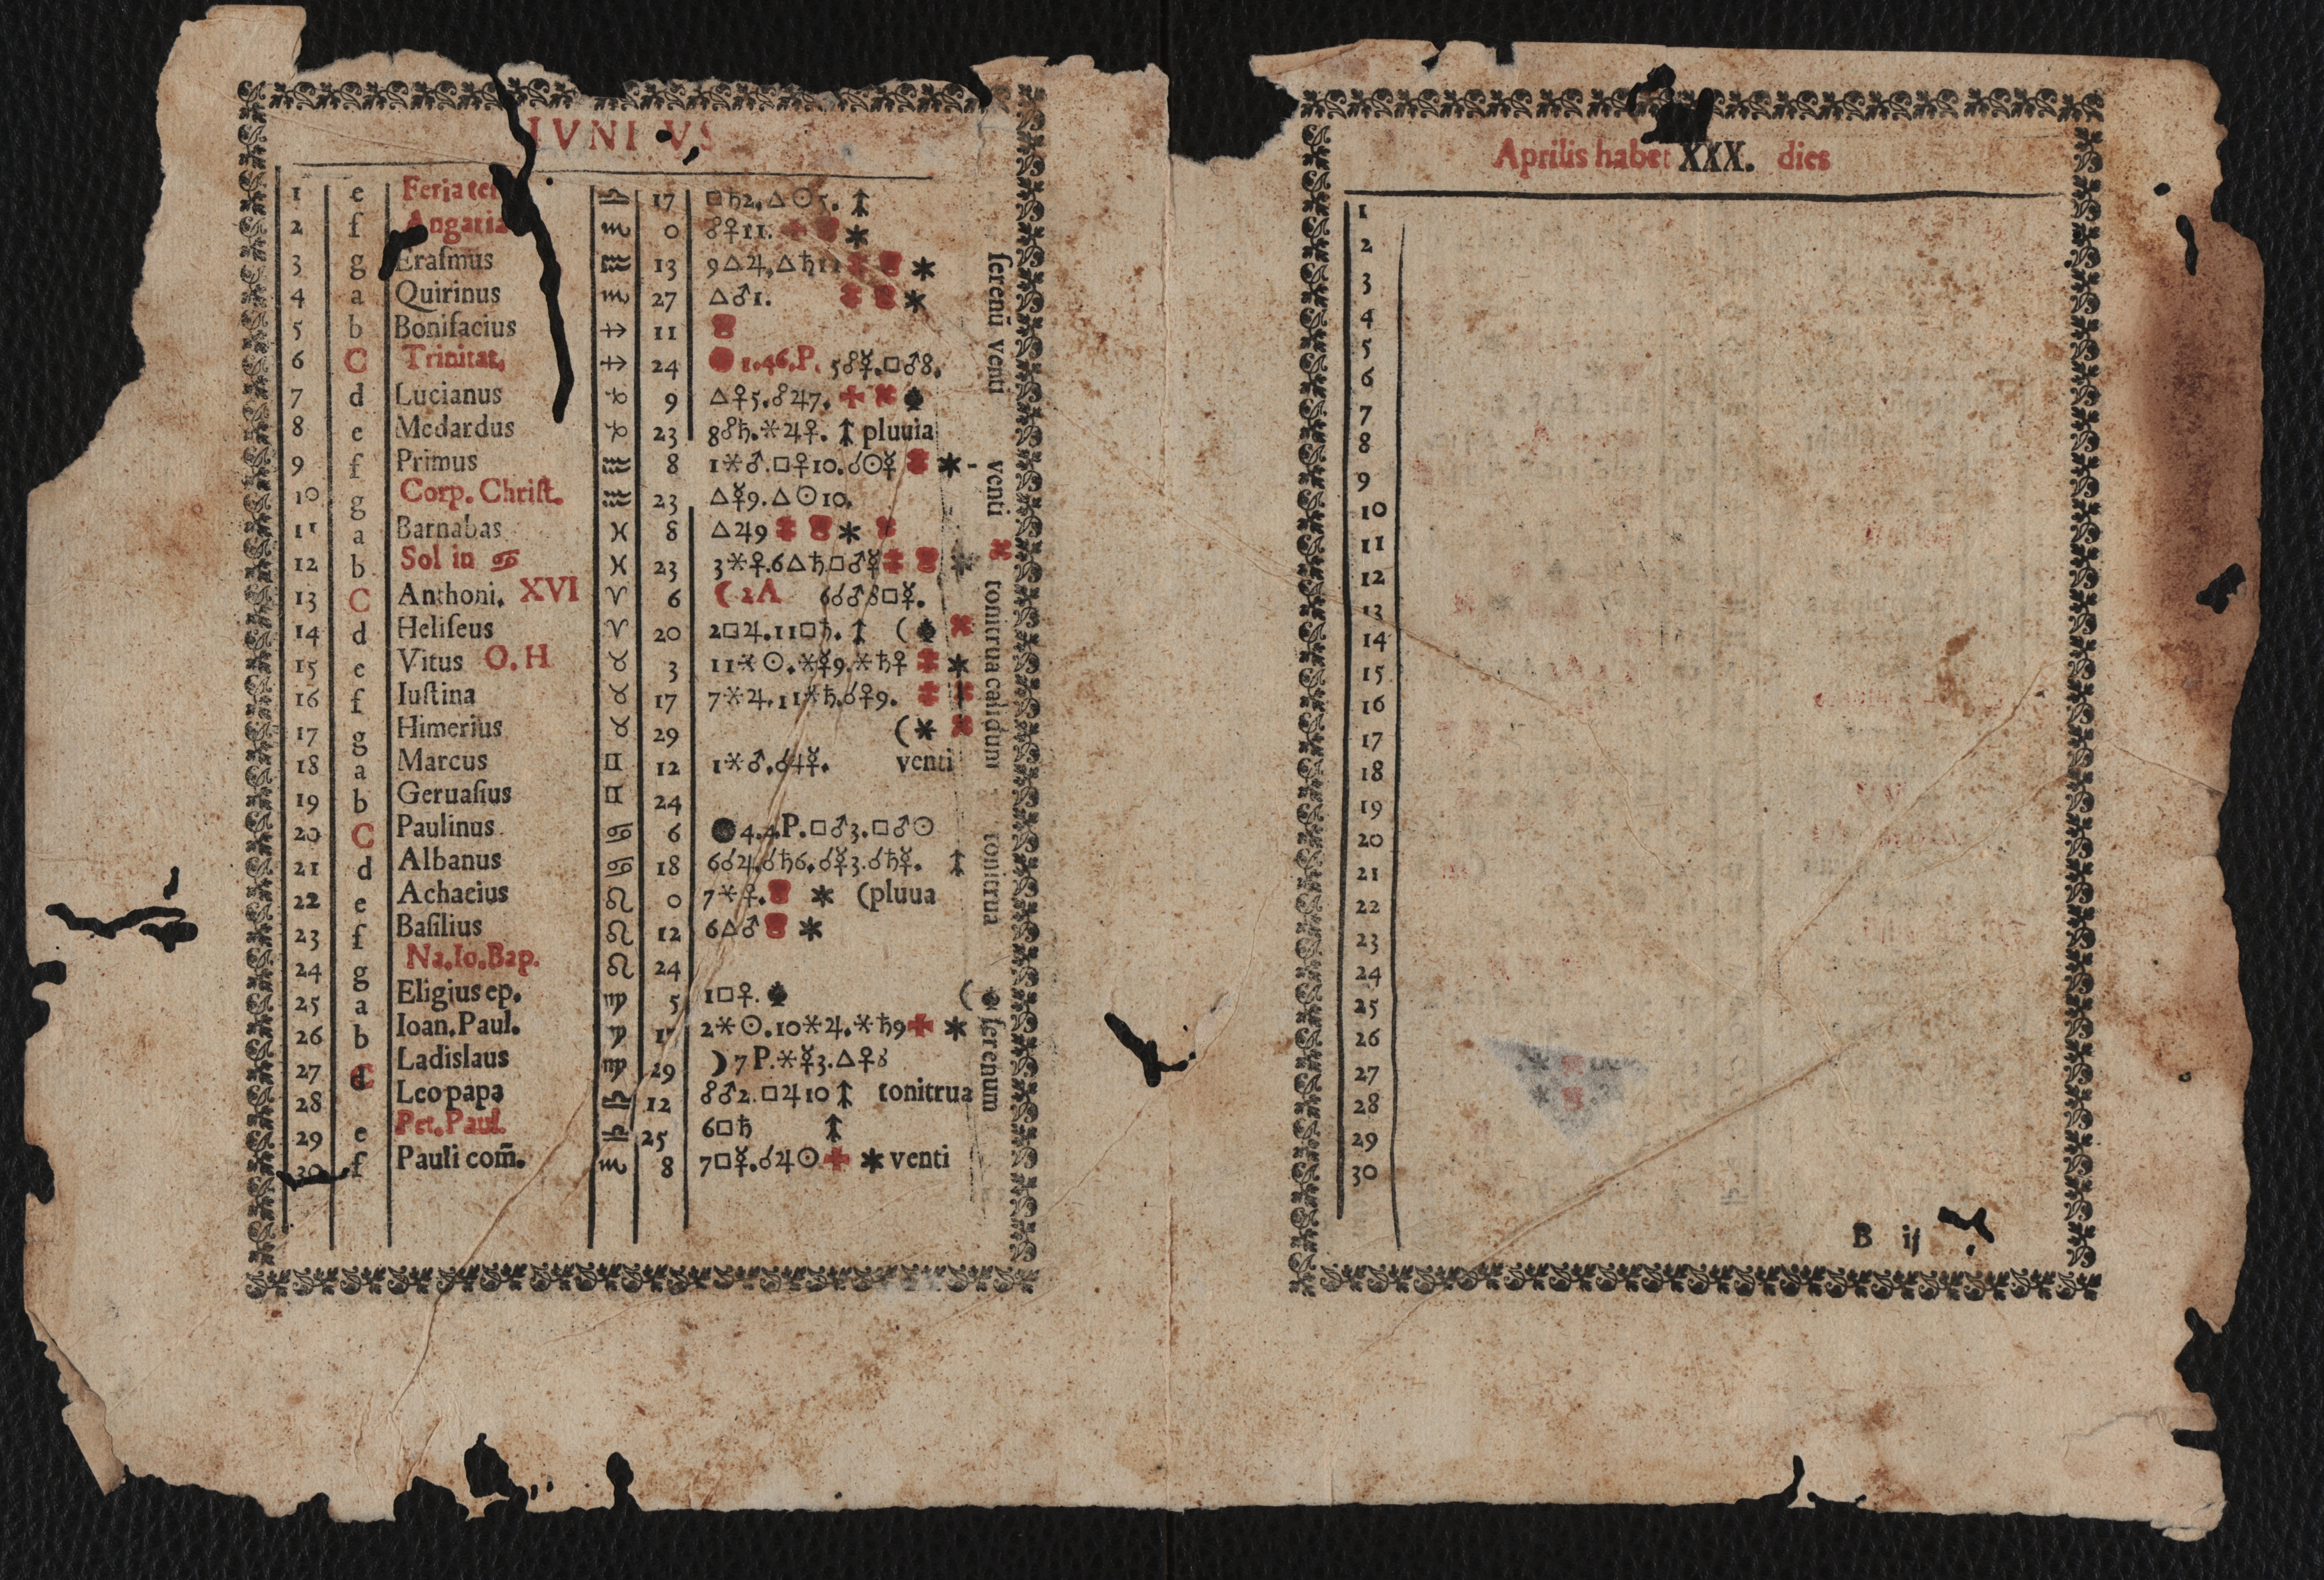 IVNIVS
1 e Feria ter ♎ 17 □♄2.△☉5.
2 f Angaria ♏ 0 ☍♀11.
3 g Eraſmus ♒ 13 9△♃.△♄11
4 a Quirinus ♏ 27 △♂1.
5 b Bonifacius ♐ 11
6 C Trinitat. ♐ 24 1.46.P. 5☍☿.□♂8.
7 d Lucianus ♑ 9 △♀5.☍♃7.
8 e Medardus ♑ 23 8☍♄.⚹♃♀. pluuia
9 f Primus ♒ 8 1⚹♂.□♀10.☌☉☿
10 g Corp. Chriſt. ♒ 23 △☿9.△☉10.
11 a Barnabas ♓ 8 △♃9
12 b Sol in ♋ ♓ 23 3⚹♀.6△♄□♂☿
13 C Anthoni. XVI ♈ 6 ( 2A 6☌♂8□☿.
14 d Heliſeus ♈ 20 2□♃.11□♄. (
15 e Vitus O.H ♉ 3 11⚹☉.⚹☿9.⚹♄♀
16 f Iuſtina ♉ 17 7⚹♃.11⚹♄.☌♀9.
17 g Himerius ♉ 29 (
18 a Marcus ♊ 12 1⚹♂.☌♃☿. venti
19 b Geruaſius ♊ 24
20 C Paulinus. ♋ 6 4.4.P.□♂3.□♂☉
21 d Albanus ♋ 18 6☌♃.☌♄6.☌☿3.☌♄☿.
22 e Achacius ♌ 0 7⚹♀. (pluua
23 f Baſilius ♌ 12 6△♂
24 g Na.Io.Bap. ♌ 24
25 a Eligius ep. ♍ 5 1□♀. (
26 b Ioan.Paul. ♍ 2⚹☉.10⚹♃.⚹♄9
27 C Ladislaus ♍ 29 ) 7 P.⚹☿3.△♀8
28 d Leo papa ♎ 12 ☍♂2.□♃10 tonitrua
29 e Pet.Paul. ♎ 25 6□♄
30 f Pauli com̃. ♏ 8 7□☿.☌♃☉ venti
ſerenū venti
venti
tonitrua calidum
tonitrua
ſerenum
Aprilis habet XXX. dies
1
2
3
4
5
6
7
8
9
10
11
12
13
14
15
16
17
18
19
20
21
22
23
24
25
26
27
28
29
30
B ij